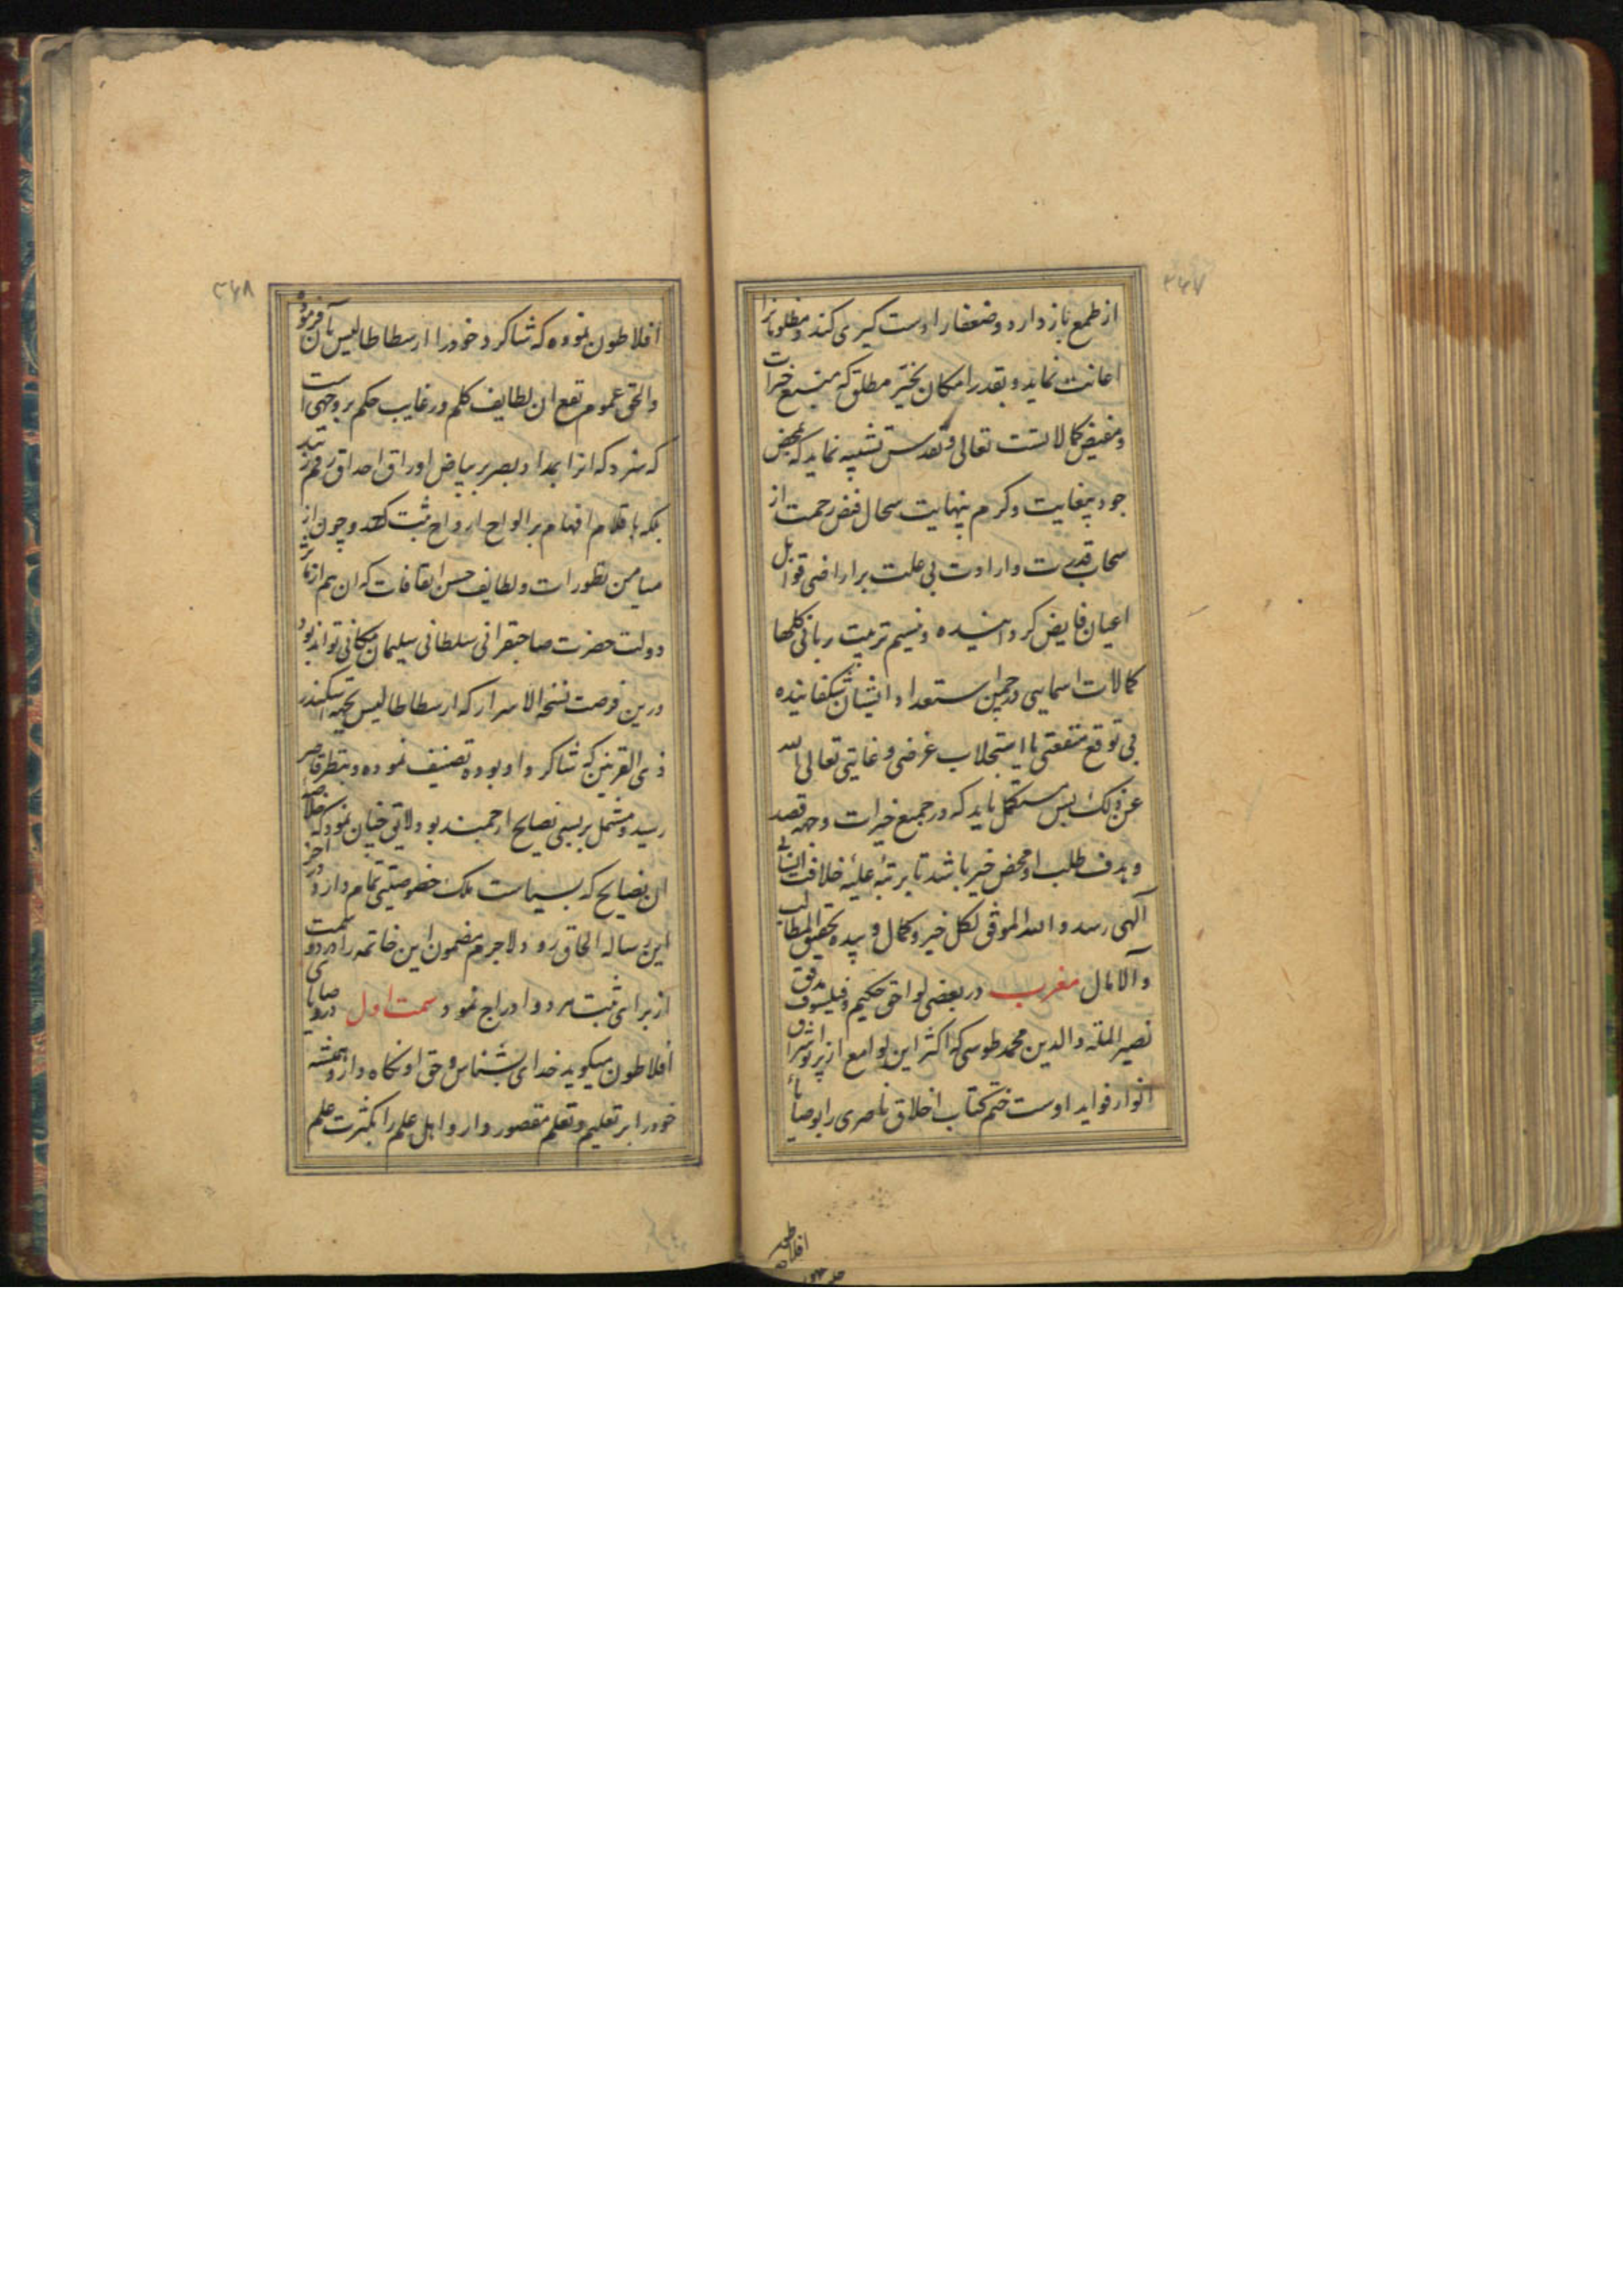 ۳۴۷
از طمع باز دارد و ضعفا را دست کیری کند و مظلومانرا
اعانت نماید و بقدر امکان بخیر مطلق که منبع خیرات
و مفیض کمالاتست تعالی و تقدس تشبیه نماید که بمحض
جود بیغایت و کرم بینهایت سجال فیض رحمت از
سحاب قدرت و ارادت بی علت بر اراضی قوابل
اعیان فایض کردانیده و نسیم تربیت ربانی کلهاء
کمالات اسمایی در چمن استعداد ایشان شکفانیده
بی توقع منفعتی یا استجلاب غرضی و غایتی تعالی الله
عن ذلک پس مستکمل باید که در جمیع خیرات وجهه قصد
و هدف طلب او محض خیر باشد تا برتبه علیه خلافت
الهی رسد و الله الموفق لکل خیر و کمال و بیده تحقیق المطالب
و الامال مغرب در بعضی لواحق حکیم و فیلسوف مدقق
نصیر الملة و الدین محمد طوسی که اکثر این لوامع از پرتو اشراق
انوار فواید اوست ختم کتاب اخلاق ناصری را بوصایاء
افلاطون
۳۴۸
افلاطون نموده که شاکرد خود را ارسطاطالیس بآن فرموده
و الحق عموم نفع ان لطایف کلم و رغایب حکم بر وجهی است
که سزد که انرا بمداد بصر بر بیاض اوراق احداق رقم زنند
بلکه باقلام افهام بر الواح ارواح ثبت کنند و چون از
میامن تطورات و لطایف حسن اتفاقات که ان هم از
دولت حضرت صاحبقرانی سلطانی سلیمان مکانی تواند بود
درین فرصت نسخه الاسرار که ارسطاطالیس بجهه اسکندر
ذی القرنین که شاکرد او بوده تصنیف نموده و بنظر قاصر
رسید و مشتمل بر بسی نصایح ارجمند بود لایق چنان نمود که خلاصه
ان نصایح که بسیاست ملک خصوصیتی تمام دارد در اخر
این رساله الحاق رود لاجرم مضمون این خاتمه را در دو سمت
از برای ثبت هر دو ادراج نمود سمت اول در وصایای
افلاطون میکوید خدای بشناس و حق او نکاه دار و همیشه
خود را بر تعلیم و تعلم مقصور دار و اهل علم را بکثرت علم